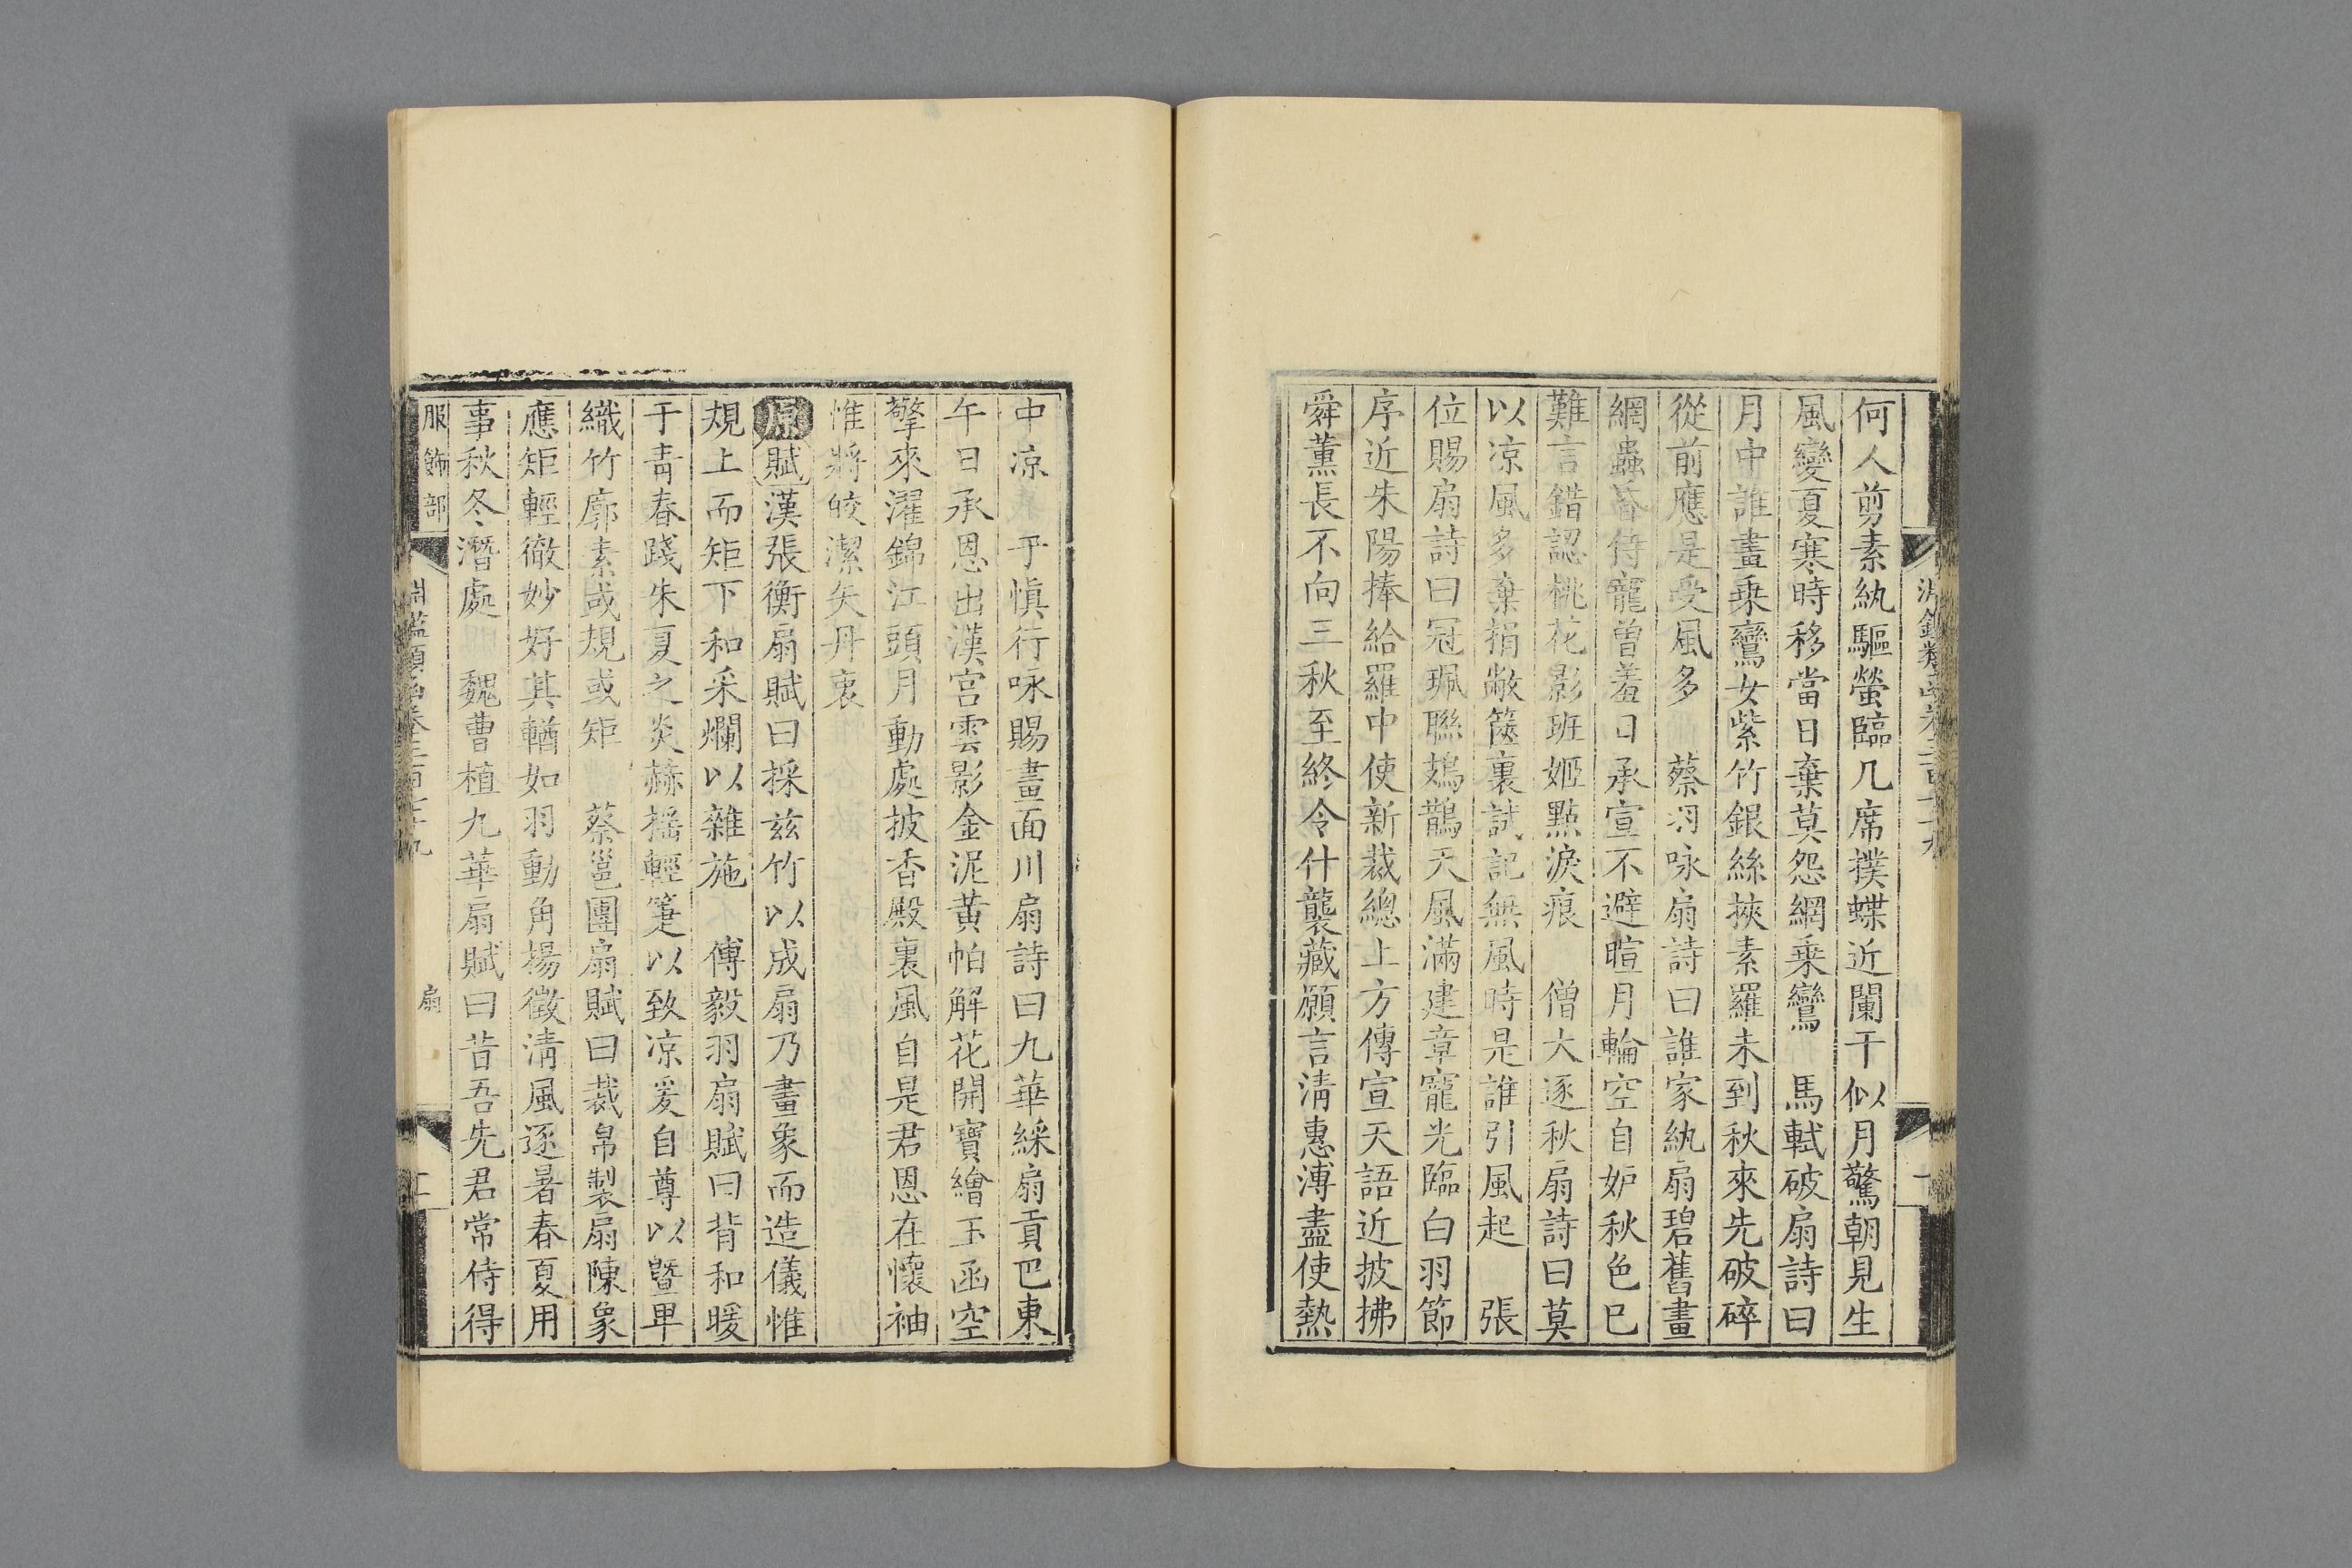 何人剪素紈驅螢臨几席撲蝶近闌干似月驚朝見生
風變夏寒時移當日棄莫怨網乗鸞　馬軾破扇詩曰
月中誰畫乗鸞女紫竹銀絲挾素羅未到秋來先破碎
從前應是受風多　蔡羽咏扇詩曰誰家紈扇碧舊畫
網蟲昏侍寵曾羞日承宣不避暄月輪空自妒秋色已
難言錯認桃花影班姬㸃淚痕　僧大逐秋扇詩曰莫
以凉風多棄捐敝篋裏試記無風時是誰引風起　張
位賜扇詩曰冠珮聯鳷鵲天風滿建章寵光臨白羽節
序近朱陽捧給羅中使新裁總上方傳宣天語近披拂
舜薰長不向三秋至終令什襲藏願言淸惠溥盡使熱
中凉　于愼行咏賜畫面川扇詩曰九華綵扇貢巴東
午日承恩出漢宫雲影金泥黄帕解花開寶繪玉函空
擎來濯錦江頭月動處披香殿裏風自是君恩在懷袖
惟將皎潔矢丹衷
原賦漢張衡扇賦曰採兹竹以成扇乃畫象而造儀惟
規上而矩下和采爛以雜施　傅毅羽扇賦曰背和暖
于青春踐朱夏之炎赫揺輕箑以致凉爰自尊以曁卑
織竹廓素或規或矩　蔡邕團扇賦曰裁帛製扇陳象
應矩輕徹妙好其輶如羽動角揚徵淸風逐暑春夏用
事秋冬潛處　魏曹植九華扇賦曰昔吾先君常侍得
服飾部
扇